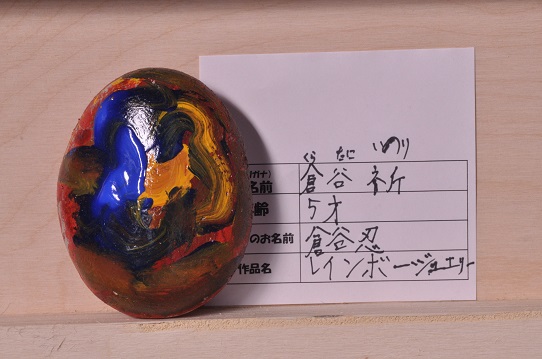 くら たに いのり
ガナ)
名前 倉谷 祈
齢 5才
のお名前 倉谷忍
作品名 レインボージュエリー